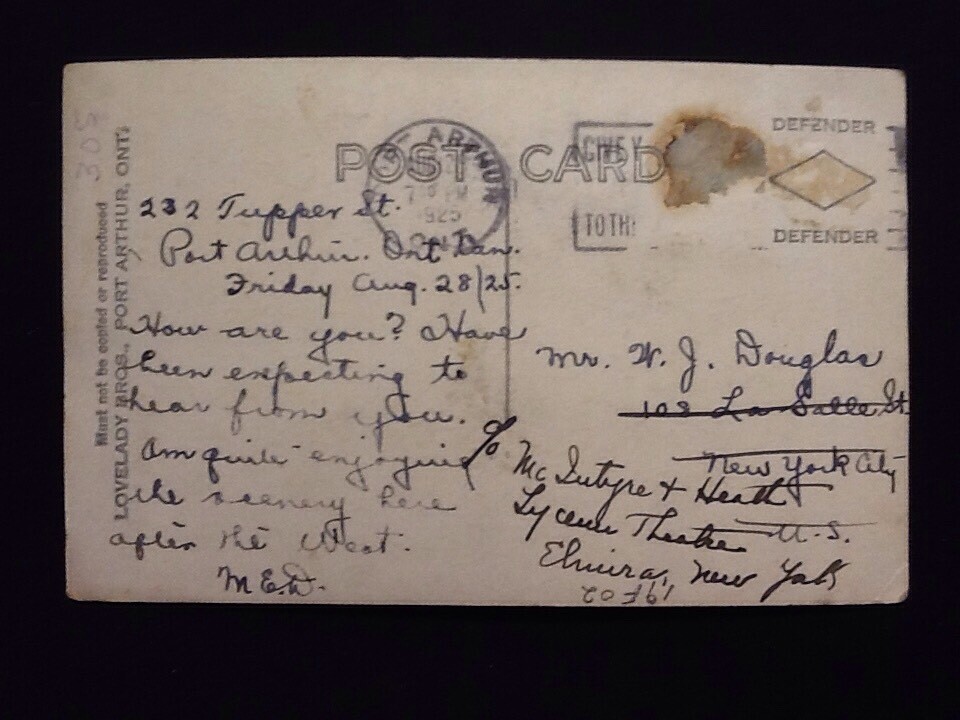 POST CARD
PORT ARTHUR
PM
1925
ONT
GIVE Y
TO TH
DEFENDER
DEFENDER
305
Must not be copied or reproduced
LOVELADY BROS., PORT ARTHUR, ONT.
232 Tupper St.
Port Arthur. Ont Can.
Friday Aug. 28/25.
How are you? Have
been expecting to
hear from you.
Am quite enjoying
the scenery here
after the West.
M.E.D.
Mr. W. J. Douglas
108 La Salle St.
New York City
U.S.
c/o McIntyre & Heath
Lyceum Theatre
Elmira, New York
19F02